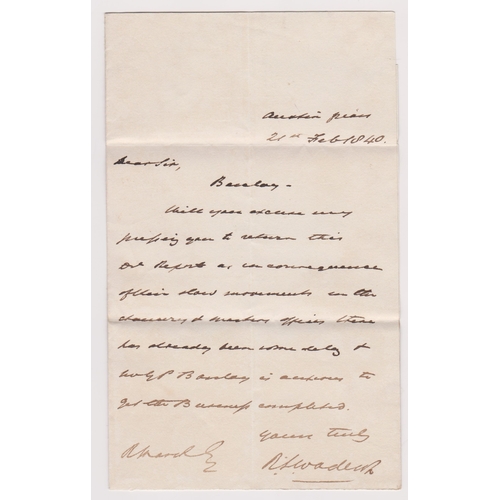 Austin Friars
21st Feb 1840.
Dear Sir,
Barclay -
Will you excuse my
pressing you to return this
Dr Report as in consequence
of their slow movements in the
chancery & masters offices there
has already been some delay &
Mr G P Barclay is anxious to
get the Business completed.
Yours truly